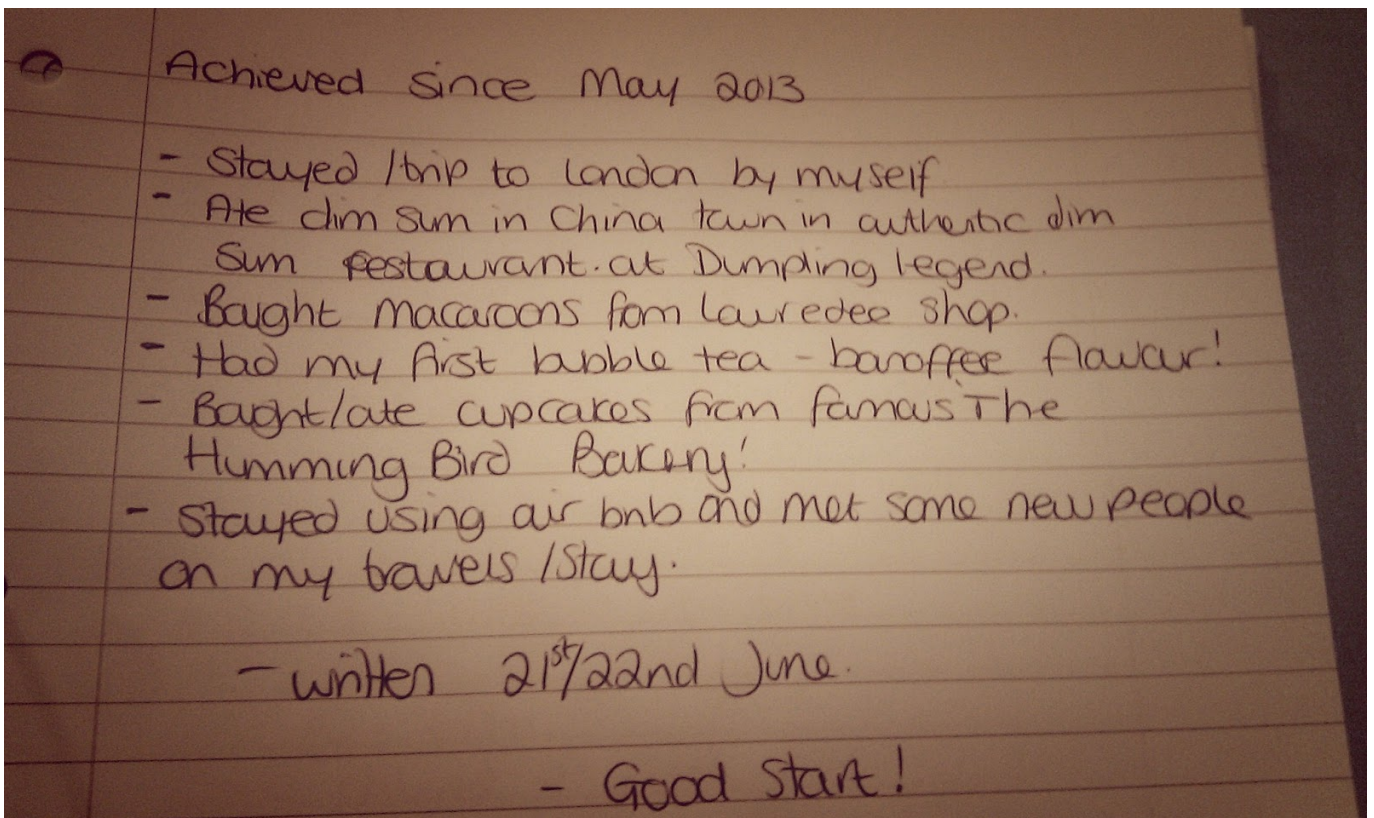 Achieved since May 2013
- Stayed / trip to London by myself
- Ate dim sum in China town in authentic dim
sum restaurant. at Dumpling legend.
- Bought macaroons fom Lauredee shop.
- Had my first bubble tea - banoffee flavour!
- Bought/ate cupcakes from famous The
Humming Bird Bakery!
- Stayed using air bnb and met some new people
on my travels /stay.
- written 21st/22nd June.
- Good Start!